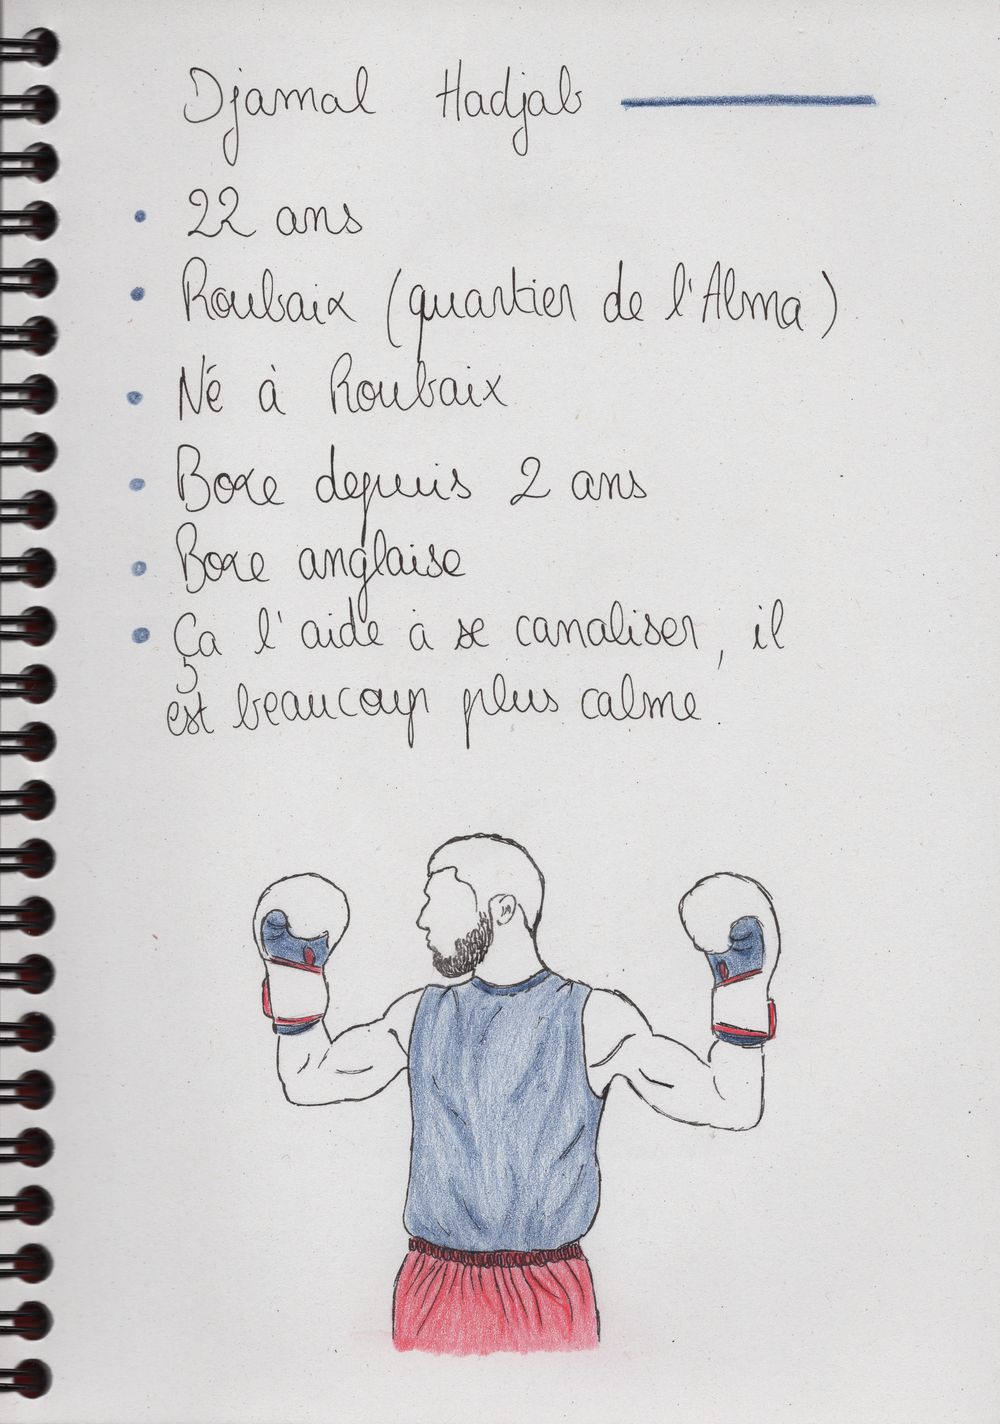 Djamal Hadjab
• 22 ans
• Roubaix (quartier de l'Alma)
• Né à Roubaix
• Boxe depuis 2 ans
• Boxe anglaise
• Ça l'aide à se canaliser, il
est beaucoup plus calme.